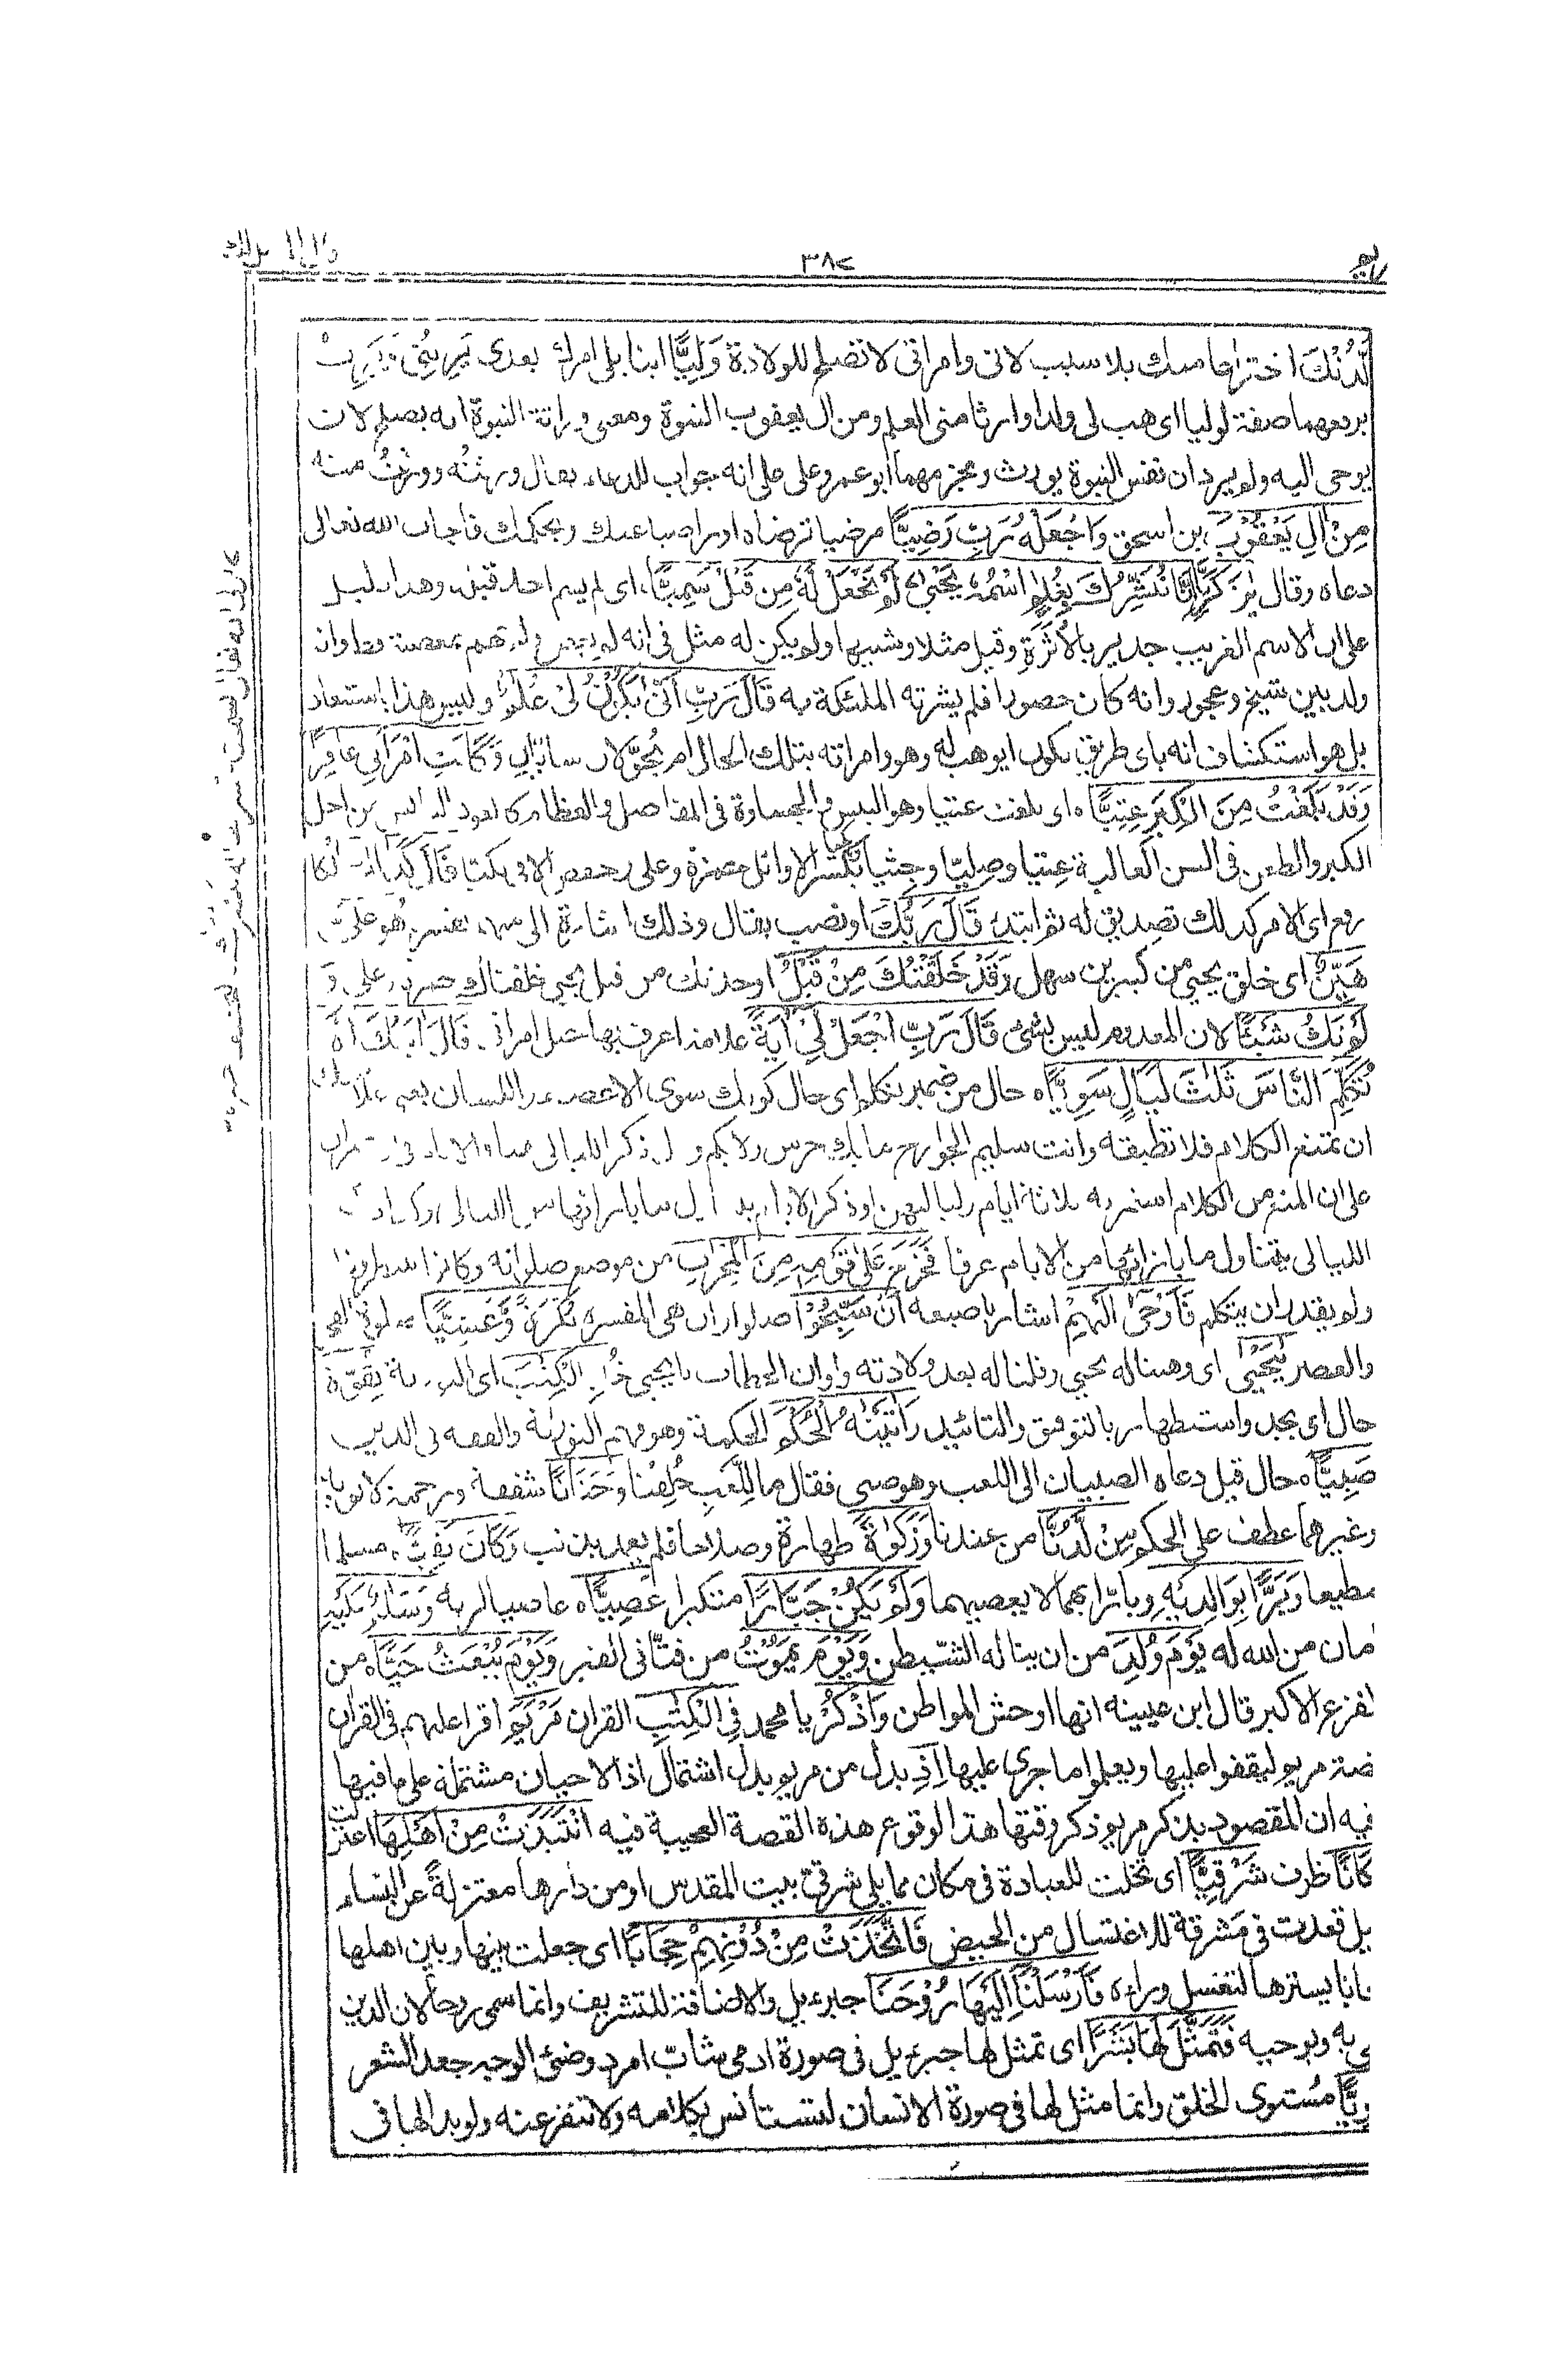 مريم
٣٨٧
لَّدُنْكَ اختراعا منك بلا سبب لانى وامراتى لا تصلح للولادة وَلِيًّا ابنا يلى امرك بعدى يَرِثُنِىْ وَيَرِثُ
برفعهما صفة لوليا اى هب لى ولدا وارثا منى العلم ومن ال يعقوب النبوة ومعنى وراثة النبوة انه يصلح لان
يوحى اليه ولم يرد ان نفس النبوة يورث وبجزمهما ابو عمرو وعلى على انه جواب للدعاء يقال ورثته وورثت منه
مِنْ اٰلِ يَعْقُوْبَ بن اسحق وَاجْعَلْهُ رَبِّ رَضِيًّا مرضيا ترضاه او راضيا عنك وبحكمك فاجاب الله تعالى
دعاه وقال يٰزَكَرِيَّا اِنَّا نُبَشِّرُكَ بِغُلٰمٍ اسْمُهٗ يَحْيٰى لَمْ نَجْعَلْ لَهٗ مِنْ قَبْلُ سَمِيًّا اى لم يسم احد قبله وهذا دليل
على ان الاسم الغريب جدير بالاثرة وقيل مثلا وشبيها ولم يكن له مثل فى انه لم يعص ولم يهم بمعصية قط وانه
ولد بين شيخ وعجوز وانه كان حصورا فلم بشرته الملئكة به قَالَ رَبِّ اَنّٰى يَكُوْنُ لِىْ غُلٰمٌ وليس هذا باستبعاد
بل هو استكشاف انه باى طريق يكون ايوهب له وهو وامراته بتلك الحال ام يحوّلان شابين وَكَانَتِ امْرَاَتِىْ عَاقِرًا
وَقَدْ بَلَغْتُ مِنَ الْكِبَرِ عِتِيًّا ه اى بلغت عتيا وهو اليبس والجساوة فى المفاصل والعظام كالعود اليابس من اجل
الكبر والطعن فى السن العالية عتيا وصليا وجثيا وبكيا بكسر الاوائل حمزة وعلى وحفص الا فى بكيا قَالَ كَذٰلِكَ الكاف
رفع اى الامر كذلك تصديق له ثم ابتدء قَالَ رَبُّكَ او نصب بقال وذلك اشارة الى مبهم يفسره هُوَ عَلَىَّ
هَيِّنٌ اى خلق يحيى من كبيرين سهل وَقَدْ خَلَقْتُكَ مِنْ قَبْلُ اوجدتك من قبل يحيى خلقناك حمزة وعلى وَ
لَمْ تَكُ شَيْئًا لان المعدوم ليس بشئ قَالَ رَبِّ اجْعَلْ لِّىْ اٰيَةً علامة اعرف بها حبل امراتى قَالَ اٰيَتُكَ اَلَّا
تُكَلِّمَ النَّاسَ ثَلٰثَ لَيَالٍ سَوِيًّا ه حال من ضمير تكلم اى حال كونك سوى الاعضاء واللسان يعنى علامتك
ان تمنع الكلام فلا تطيقه وانت سليم الجوارح ما بك خرس ولا بكم و
على ان المنع من الكلام استمر به ثلاثة ايام ولياليهن اذ ذكر الايام
الليالى يتناول ما بازائها من الايام عرفا فَخَرَجَ عَلٰى قَوْمِهٖ مِنَ الْمِحْرَابِ من موضع صلوته وكانوا ينتظرونه
ولم يقدر ان يتكلم فَاَوْحٰٓى اِلَيْهِمْ اشار باصبعه اَنْ سَبِّحُوْا صلوا وان هى المفسرة بُكْرَةً وَّعَشِيًّا ه صلوة الفجر
والعصر يٰيَحْيٰى اى وهبنا له يحيى وقلنا له بعد ولادته واوان الخطاب يا يحيى خُذِ الْكِتٰبَ اى التورية بِقُوَّةٍ
حال اى بجد واستظهار بالتوفيق والتائيد وَاٰتَيْنٰهُ الْحُكْمَ الحكمة وهو فهم التورية والفقه فى الدين
صَبِيًّا ه حال قيل دعاه الصبيان الى اللعب وهو صبى فقال ما للّعب خلقنا وَحَنَانًا شفقة ورحمة لابويه
وغيرهما عطف على الحكم مِنْ لَّدُنَّا من عندنا وَزَكٰوةً طهارة وصلاحا فلم يعمد بذنب وَكَانَ تَقِيًّا مسلما
مطيعا وَبَرًّا بِوَالِدَيْهِ وبارا بهما لا يعصيهما وَلَمْ يَكُنْ جَبَّارًا متكبرا عَصِيًّا ه عاصيا لربه وَسَلٰمٌ عَلَيْهِ
امان من الله له يَوْمَ وُلِدَ من ان يناله الشيطن وَيَوْمَ يَمُوْتُ من فتانى القبر وَيَوْمَ يُبْعَثُ حَيًّا ه من
لفزع الاكبر قال ابن عيينه انها اوحش المواطن وَاذْكُرْ يا محمد فِى الْكِتٰبِ القران مَرْيَمَ اقرا عليهم فى القران
قصة مريم ليقفوا عليها ويعلموا ما جرى عليها اِذِ بدل من مريم بدل اشتمال اذ الاحيان مشتملة على ما فيها
فيه ان المقصود بذكر مريم ذكر وقتها هذا لوقوع هذه القصة العجيبة فيه انْتَبَذَتْ مِنْ اَهْلِهَا اعتزلت
كَانًا ظرف شَرْقِيًّا اى تخلت للعبادة فى مكان مما يلى شرقى بيت المقدس او من دارها معتزلة عن النساء
يل قعدت فى مشرقة للاغتسال من الحيض فَاتَّخَذَتْ مِنْ دُوْنِهِمْ حِجَابًا اى جعلت بينها وبين اهلها
جابا يسترها لتغتسل وراءه فَاَرْسَلْنَا اِلَيْهَا رُوْحَنَا جبرءيل والاضافة للتشريف وانما سمى روحا لان الدين
يى به وبوحيه فَتَمَثَّلَ لَهَا بَشَرًا اى تمثل لها جبرءيل فى صورة ادمى شابّ امرد وضئ الوجه جعد الشعر
وِيًّا مستوى الخلق وانما مثل لها فى صورة الانسان لتستانس بكلامه ولا تنفر عنه ولو بدا لها فى